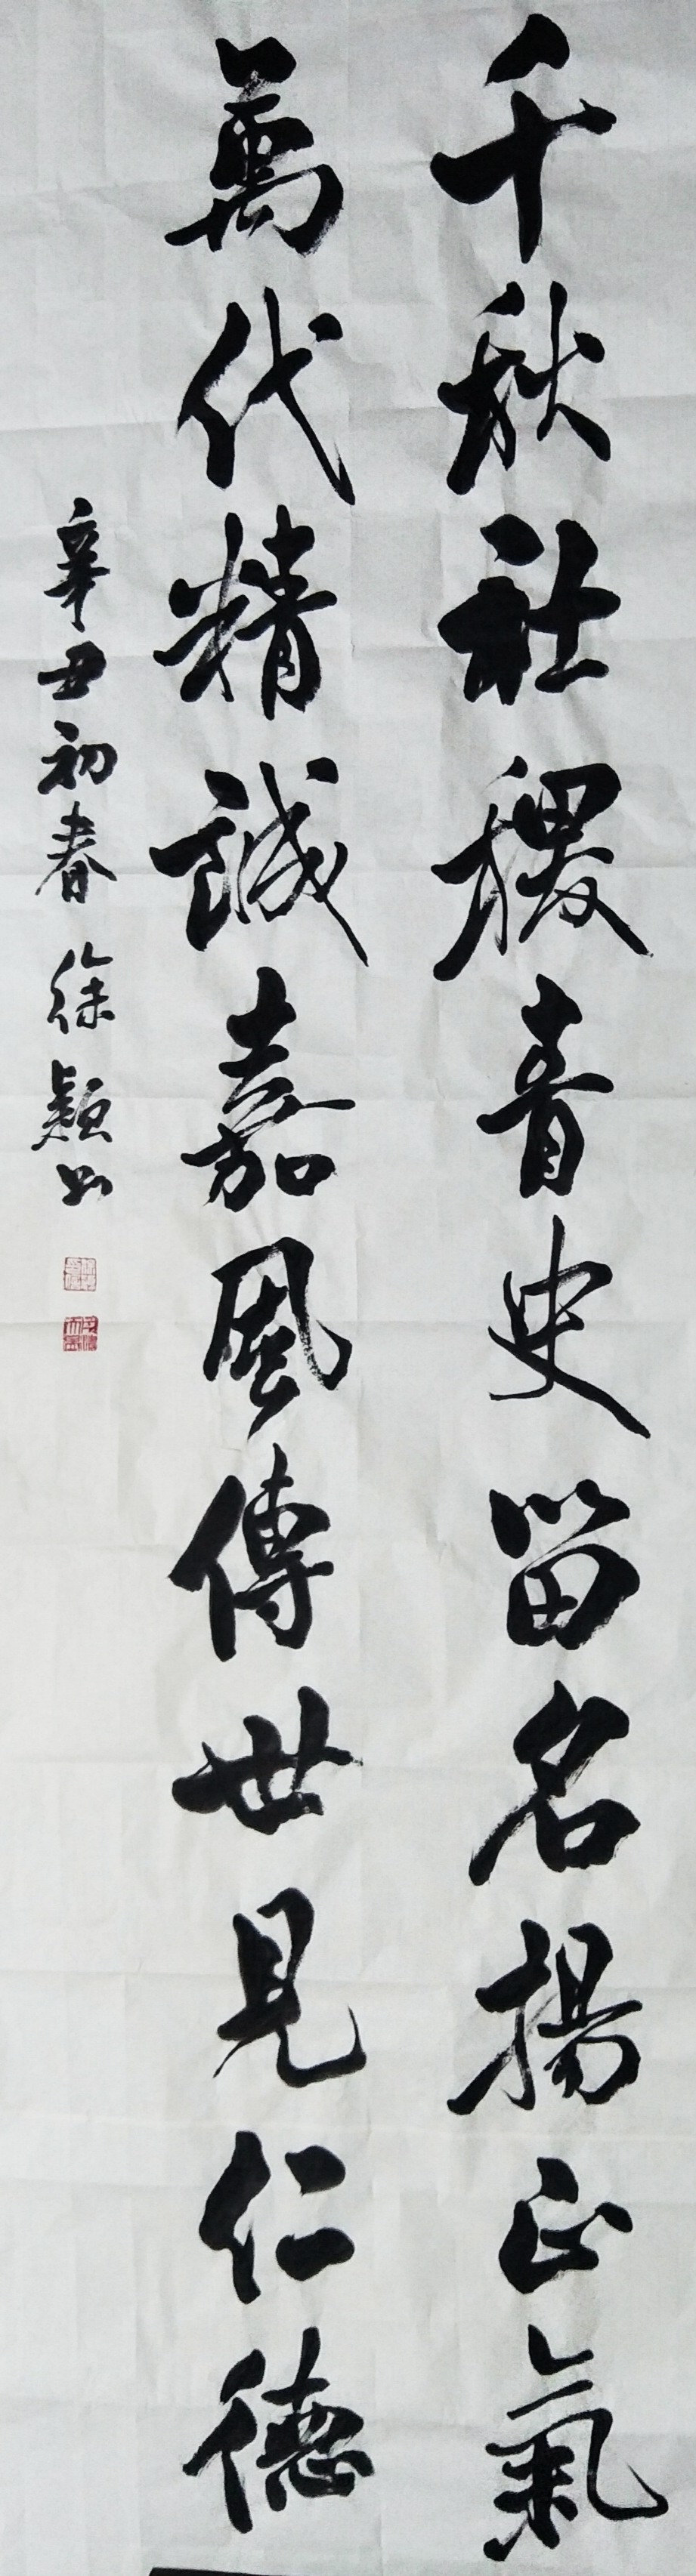 千秋社稷青史留名揚正氣
萬代精誠嘉風傳世見仁德
辛丑初春 徐穎书